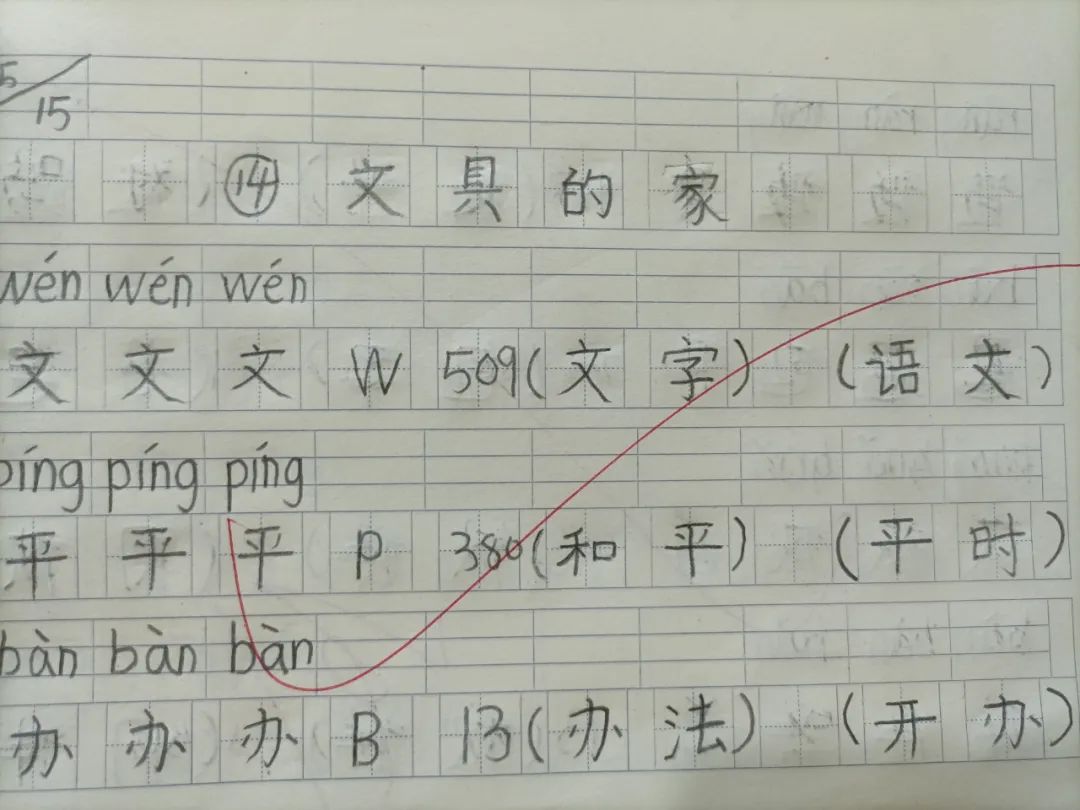 5/15
⑭ 文具的家
wén wén wén
文 文 文 W 509(文字) (语文)
píng píng píng
平 平 平 P 380(和平) (平时)
bàn bàn bàn
办 办 办 B 13(办法) (开办)